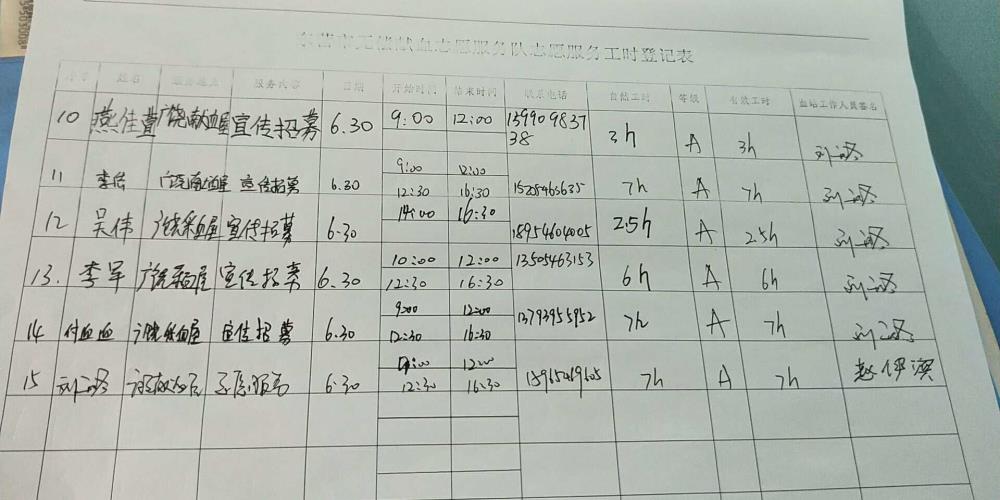 东营市无偿献血志愿服务队志愿服务工时登记表
序号 姓名 服务地点 服务内容 日期 开始时间 结束时间 联系电话 自然工时 等级 有效工时 血站工作人员签名
10 燕佳 广饶献血屋 宣传招募 6.30 9:00 12:00 15990983738 3h A 3h 刘
11 李 广饶献血屋 宣传招募 6.30 9:00 12:00 7h A 7h 刘
12:30 16:30
12 吴伟 广饶采血屋 宣传招募 6.30 14:00 16:30 18954604005 2.5h A 2.5h 刘
13. 李军 广饶 宣传招募 6.30 10:00 12:00 13505463153 6h A 6h 刘
12:30 16:30
14 付血血 广饶采血屋 宣传招募 6.30 9:00 12:00 13793955952 7h A 7h 刘
12:30 16:30
15 刘 6.30 9:00 12:00 7h A 7h 赵伊滨
12:30 16:30